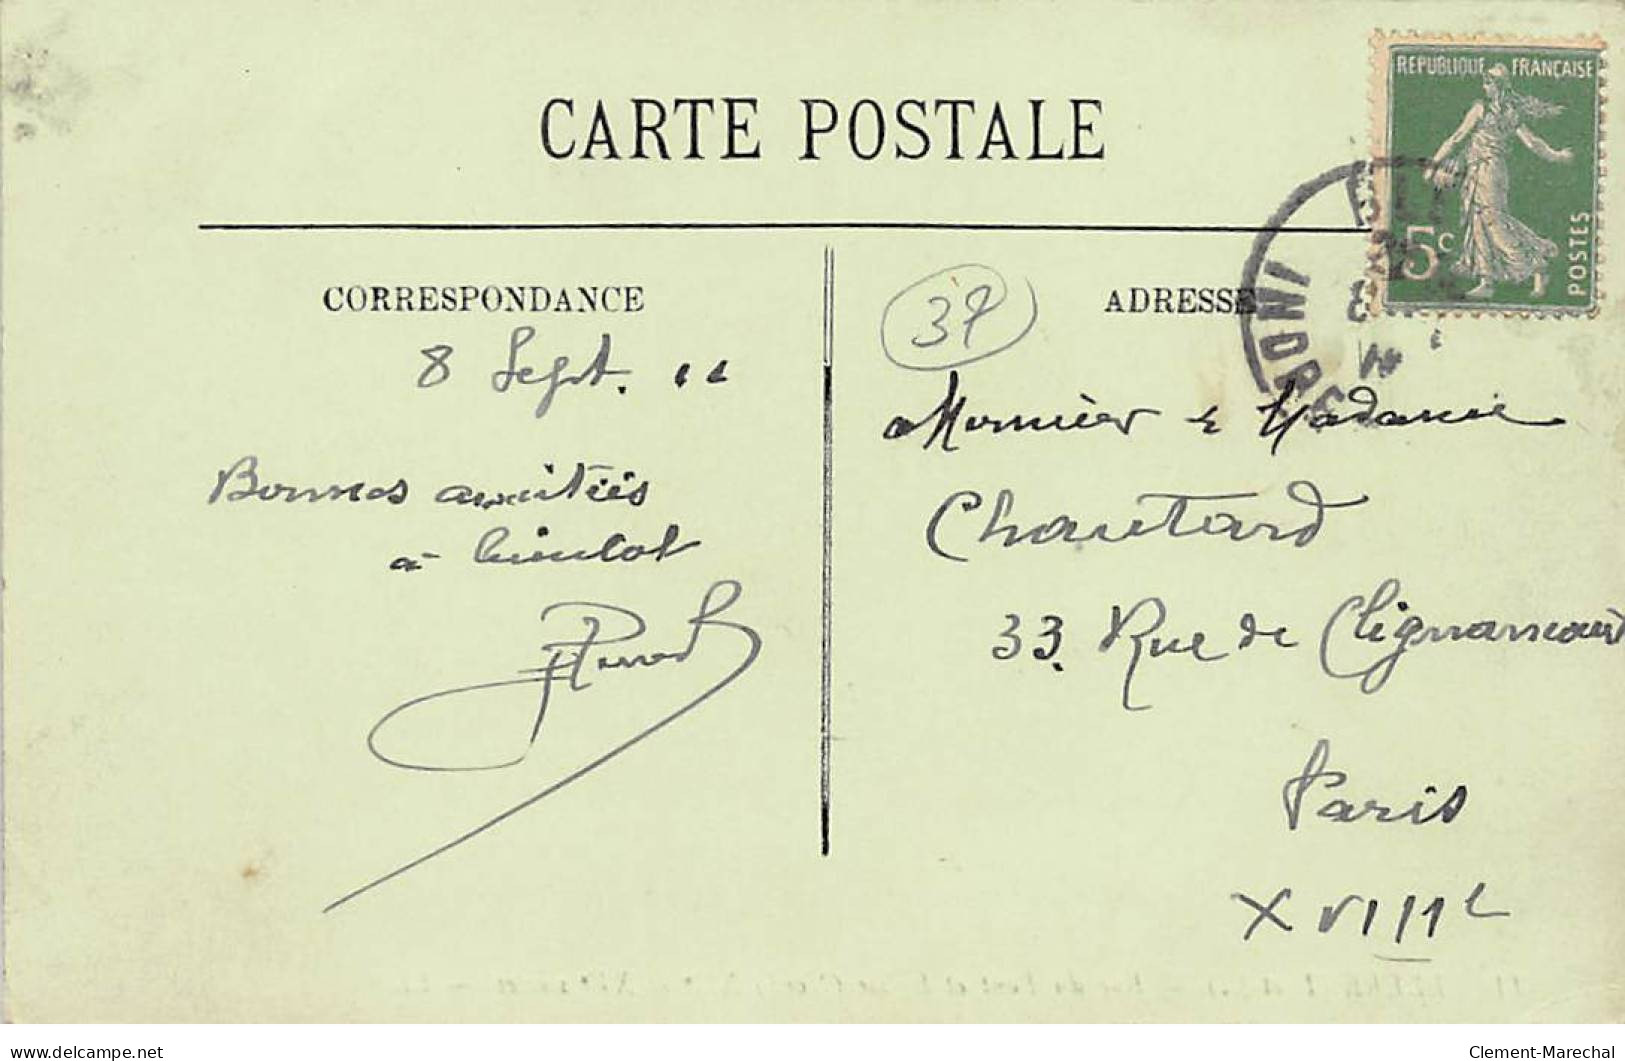 CARTE POSTALE
REPUBLIQUE FRANÇAISE
5c
POSTES
INDRE
CORRESPONDANCE
37
ADRESSE
8 Sept. 11
Monsieur & Madame
Chautard
33. Rue de Clignancourt
Paris
XVIIIe
Bonnes amitiés
à bientot
delcampe.net
Clement-Marechal